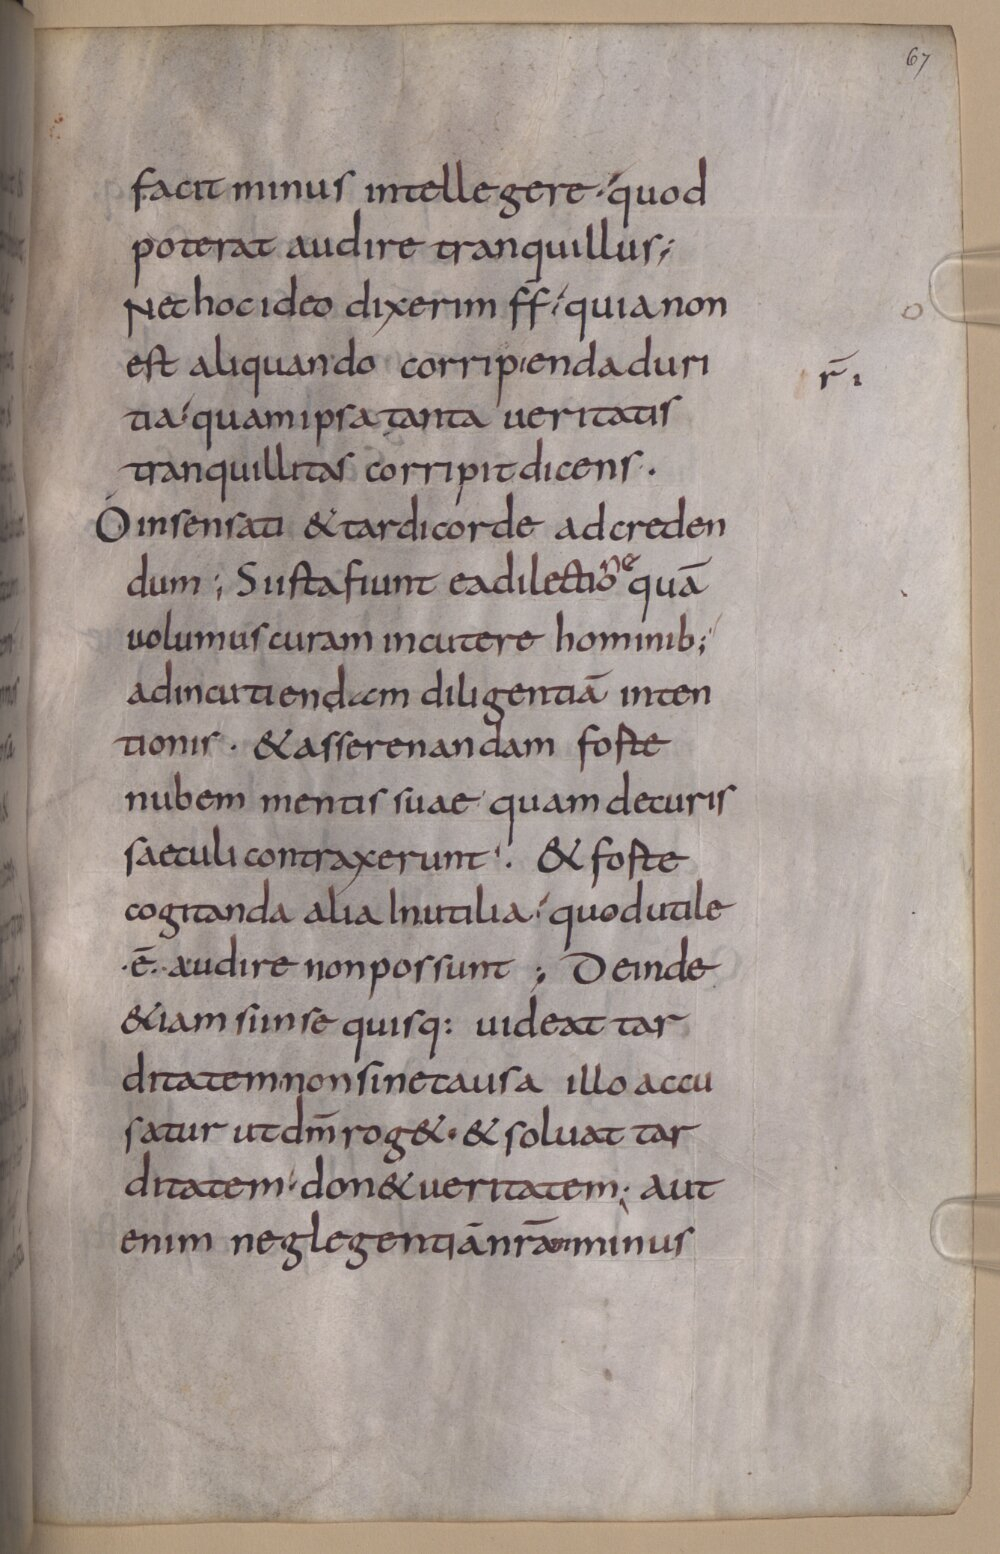 67
facit minus intellegere quod
poterat audire tranquillus;
Nec hoc ideo dixerim ff quia non
est aliquando corripienda duri
r̄ı
tia quam ipsa tanta veritatis
tranquillitas corripit dicens.
O insensati & tardi corde ad creden
dum; S iista fiunt ea dilectione quā
uolumus curam incutere hominib;
ad incutiendam diligentiā inten
tionis. & asserenandam foste
nubem mentis suae quam de curis
saeculi contraxerunt. & foste
cogitanda alia Inutilia quod utile
·ē· audire non possunt; Deinde
&iam si in se quisq: uideat tar
ditatem non sine causa illo accu
satur ut dm̄ rog&· & soluat tar
ditatem· don& ueritatem; aut
enim neglegentiā nr̄am minus